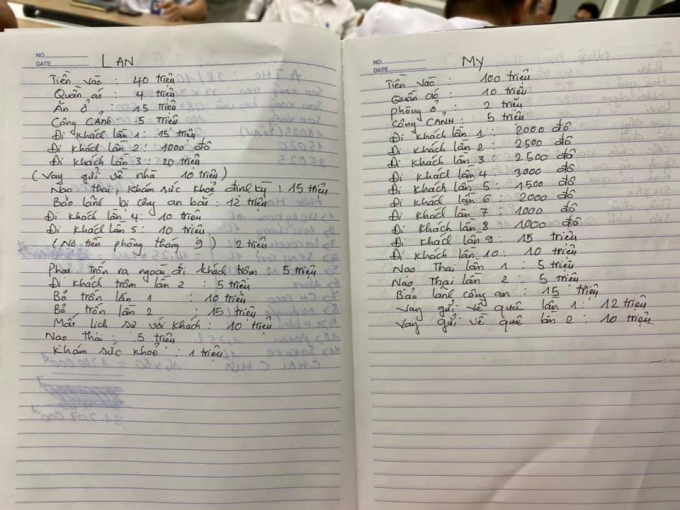 NO.
DATE
LAN
Tiền vào : 40 triệu
Quần aó : 4 triệu
Ăn ở : 15 triệu
Công CẢNH : 5 triệu
Đi Khách lần 1 : 15 triệu
Đi Khách lần 2 : 1000 đô
Đi khách lần 3 : 20 triệu
(Vay gửi về nhà 10 triệu)
Nạo thai, khám sức khoẻ định kỳ : 15 triệu
Bảo lãnh bị công an bắt : 12 triệu
Đi khách lần 4 : 10 triệu
Đi Khách lần 5 : 10 triệu
(Nợ tiền phòng tháng 9) : 2 triệu
Phạt trốn ra ngoài đi khách trôm : 5 triệu
Đi Khách trôm lần 2 : 5 triệu
Bỏ trốn lần 1 : 10 triệu
Bỏ trốn lần 2 : 15 triệu
Mất lịch sự với Khách : 10 triệu
Nạo thai : 5 triệu
Khám sức khoẻ : 1 triệu
NO.
DATE
MY
Tiền vào : 100 triệu
Quần aó : 10 triệu
phòng ở : 2 triệu
Công CẢNH : 5 triệu
Đi Khách lần 1 : 2000 đô
Đi khách lần 2 : 2500 đô
Đi khách lần 3 : 2500 đô
Đi Khách lần 4 : 3000 đô
Đi Khách lần 5 : 1500 đô
Đi khách lần 6 : 2000 đô
Đi khách lần 7 : 1000 đô
Đi Khách lần 8 : 1000 đô
Đi Khách lần 9 : 15 triệu
Đi Khách lần 10 : 10 triệu
Nạo Thai lần 1 : 5 triệu
Nạo Thai lần 2 : 5 triệu
Bảo lãnh công an : 15 triệu
Vay gửi về quê lần 1 : 12 triệu
Vay gửi về quê lần 2 : 10 triệu